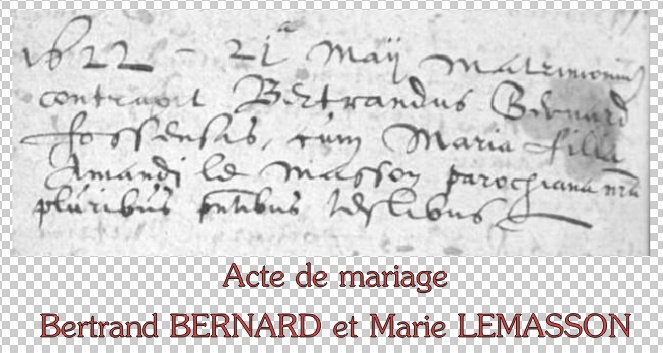 1622 - 21a Maij Matrimonium
contraxit Bertrandus Bernard
fossensis, cum Maria filia
Amandi le Masson parochiana nra
pluribus pntibus testibus
Acte de mariage
Bertrand BERNARD et Marie LEMASSON